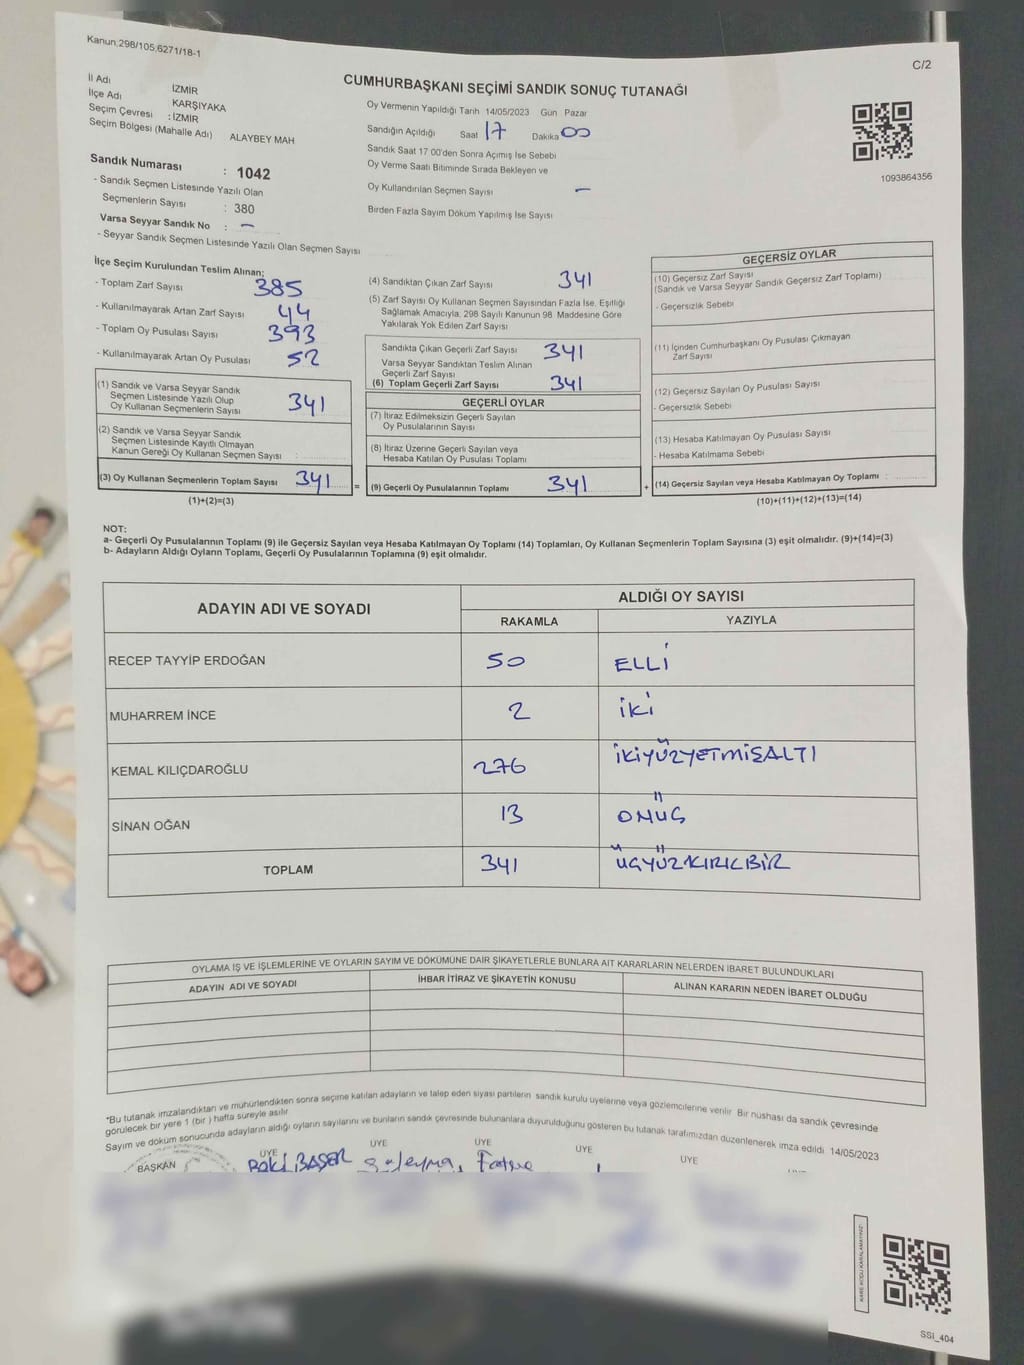 Kanun;298/105,6271/18-1
C/2
CUMHURBAŞKANI SEÇİMİ SANDIK SONUÇ TUTANAĞI
İl Adı İZMİR
İlçe Adı KARŞIYAKA
Seçim Çevresi : İZMİR
Seçim Bölgesi (Mahalle Adı) ALAYBEY MAH
Oy Vermenin Yapıldığı Tarih 14/05/2023 Gün Pazar
Sandığın Açıldığı Saat 17 Dakika 00
Sandık Saat 17 00'den Sonra Açımış İse Sebebi
Oy Verme Saati Bitiminde Sırada Bekleyen ve
Oy Kullandırılan Seçmen Sayısı -
Birden Fazla Sayım Döküm Yapılmış İse Sayısı
1093864356
Sandık Numarası : 1042
- Sandık Seçmen Listesinde Yazılı Olan
Seçmenlerin Sayısı : 380
Varsa Seyyar Sandık No : -
- Seyyar Sandık Seçmen Listesinde Yazılı Olan Seçmen Sayısı
İlçe Seçim Kurulundan Teslim Alınan;
- Toplam Zarf Sayısı 385
- Kullanılmayarak Artan Zarf Sayısı 44
- Toplam Oy Pusulası Sayısı 393
- Kullanılmayarak Artan Oy Pusulası 52
(1) Sandık ve Varsa Seyyar Sandık
Seçmen Listesinde Yazılı Olup
Oy Kullanan Seçmenlerin Sayısı 341
(2) Sandık ve Varsa Seyyar Sandık
Seçmen Listesinde Kayıtlı Olmayan
Kanun Gereği Oy Kullanan Seçmen Sayısı :
(3) Oy Kullanan Seçmenlerin Toplam Sayısı 341
(1)+(2)=(3)
(4) Sandıktan Çıkan Zarf Sayısı 341
(5) Zarf Sayısı Oy Kullanan Seçmen Sayısından Fazla İse, Eşitliği
Sağlamak Amacıyla, 298 Sayılı Kanunun 98 Maddesine Göre
Yakılarak Yok Edilen Zarf Sayısı
Sandıkta Çıkan Geçerli Zarf Sayısı 341
Varsa Seyyar Sandıktan Teslim Alınan
Geçerli Zarf Sayısı
(6) Toplam Geçerli Zarf Sayısı 341
GEÇERLİ OYLAR
(7) İtiraz Edilmeksizin Geçerli Sayılan
Oy Pusulalarının Sayısı
(8) İtiraz Üzerine Geçerli Sayılan veya
Hesaba Katılan Oy Pusulası Toplamı
= (9) Geçerli Oy Pusulalarının Toplamı 341 +
GEÇERSİZ OYLAR
(10) Geçersiz Zarf Sayısı
(Sandık ve Varsa Seyyar Sandık Geçersiz Zarf Toplamı)
- Geçersizlik Sebebi
(11) İçinden Cumhurbaşkanı Oy Pusulası Çıkmayan
Zarf Sayısı
(12) Geçersiz Sayılan Oy Pusulası Sayısı
- Geçersizlik Sebebi
(13) Hesaba Katılmayan Oy Pusulası Sayısı
- Hesaba Katılmama Sebebi
(14) Geçersiz Sayılan veya Hesaba Katılmayan Oy Toplamı :
(10)+(11)+(12)+(13)=(14)
NOT:
a- Geçerli Oy Pusulalarının Toplamı (9) ile Geçersiz Sayılan veya Hesaba Katılmayan Oy Toplamı (14) Toplamları, Oy Kullanan Seçmenlerin Toplam Sayısına (3) eşit olmalıdır. (9)+(14)=(3)
b- Adayların Aldığı Oyların Toplamı, Geçerli Oy Pusulalarının Toplamına (9) eşit olmalıdır.
ADAYIN ADI VE SOYADI ALDIĞI OY SAYISI
RAKAMLA YAZIYLA
RECEP TAYYİP ERDOĞAN 50 ELLİ
MUHARREM İNCE 2 İKİ
KEMAL KILIÇDAROĞLU 276 İKİYÜZYETMİŞALTI
SİNAN OĞAN 13 ONÜÇ
TOPLAM 341 ÜÇYÜZKIRKBİR
OYLAMA İŞ VE İŞLEMLERİNE VE OYLARIN SAYIM VE DÖKÜMÜNE DAİR ŞİKAYETLERLE BUNLARA AİT KARARLARIN NELERDEN İBARET BULUNDUKLARI
ADAYIN ADI VE SOYADI İHBAR İTİRAZ VE ŞİKAYETİN KONUSU ALINAN KARARIN NEDEN İBARET OLDUĞU
*Bu tutanak imzalandıktan ve mühürlendikten sonra seçime katılan adayların ve talep eden siyasi partilerin sandık kurulu üyelerine veya gözlemcilerine verilir Bir nüshası da sandık çevresinde
görülecek bir yere 1 (bir) hafta süreyle asılır
Sayım ve döküm sonucunda adayların aldığı oyların sayılarını ve bunların sandık çevresinde bulunanlara duyurulduğunu gösteren bu tutanak tarafımızdan düzenlenerek imza edildi 14/05/2023
BAŞKAN ÜYE ÜYE ÜYE ÜYE ÜYE
Baki BAŞER
KARE KODU KARALAMAYINIZ
SSI_404